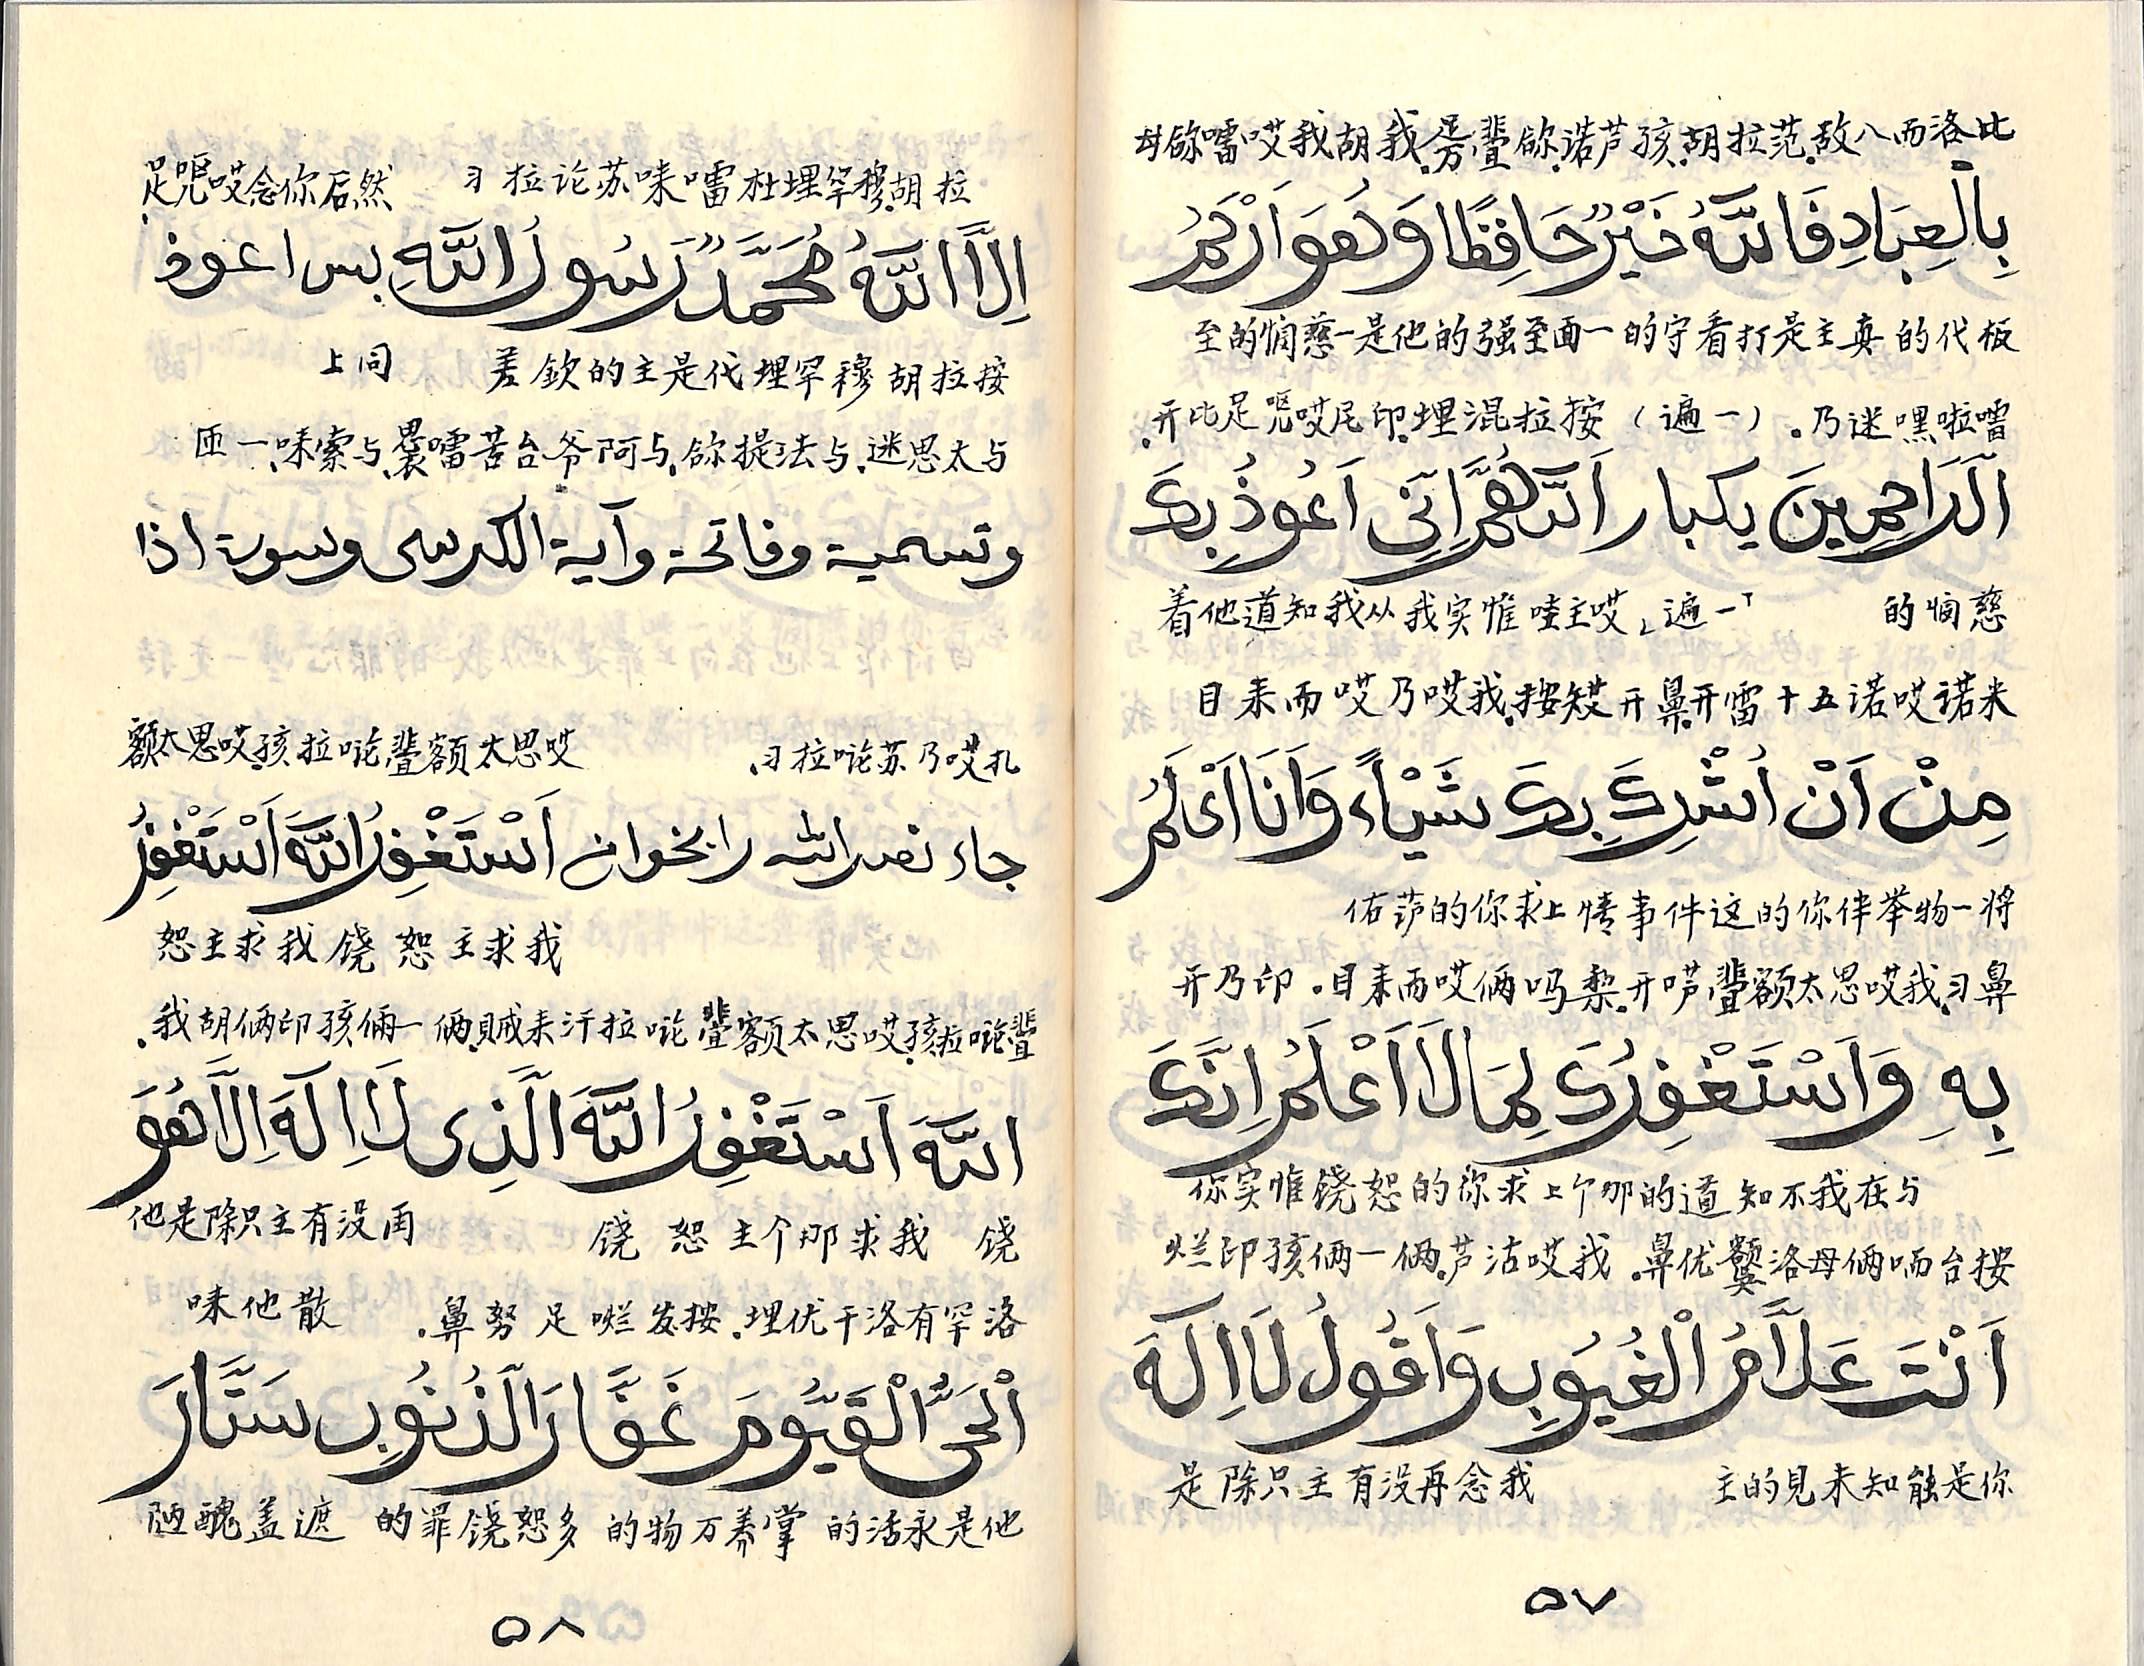 比洛而八敌.范拉胡.孩芦诺.胡我哎嚅
بِالْعِبَادِ فَاللّٰهُ خَيْرٌ حَافِظًا وَهُوَ اَرْحَمُ
板代的真主是打看守的一面至强的他是一慈悯的至
嚅啦嘿迷乃.（一遍）按拉混埋.印尼哎足比.开
الرَّاحِمِينَ يكبار اَللّٰهُمَّ اِنِّي اَعُوذُ بِكَ
慈悯的 「一遍」哎主哇惟实我从我知道他着
米诺哎诺五十雷开.鼻开按.我哎乃哎而耒目
مِنْ اَنْ اُشْرِكَ بِكَ شَيْاءً وَاَنَا اَعْلَمُ
将一物举伴你的这件事情上求你的萨佑
鼻习.我哎思太额开.梨吗俩哎而耒目.印乃开
بِهِ وَاَسْتَغْفِرُكَ لِمَا لَا اَعْلَمُ اِنَّكَ
与在我不知道的那个上求你的恕饶惟实你
按台俩母洛优鼻.我哎沽芦.俩一俩孩印烂
اَنْتَ عَلَّامُ الْغُيُوبِ وَاَقُولُ لَا اِلٰهَ
你是能知未見的主 我念再没有主只除是
٥٧
拉胡.穆罕埋杜嚅咪苏论拉习 然后你念哎足
اِلَّا اللّٰهُ مُحَمَّدٌ رَسُولُ اللّٰهِ بس اعوذ
按拉胡穆罕埋代是主的欽差 同上
与太思迷.与法提.与阿爷台苦嚅.与索咪.一匝
وتسمية وفاتحة وآية الكرسى وسورة اذا
扎哎乃苏拉习. 哎思太额拉孩.哎思太额
جاء نصر الله را بخوان اَسْتَغْفِرُ اللّٰهَ اَسْتَغْفِرُ
我求主恕饶我求主恕
拉孩.哎思太额拉汗耒贼.俩一俩孩印俩胡我.
اللّٰهَ اَسْتَغْفِرُ اللّٰهَ الَّذِى لَا اِلٰهَ اِلَّا هُوَ
饶 我求那个主恕饶 没有主只除是他
洛罕有洛干优埋.按发足努鼻. 散他咪
اَلْحَىُّ الْقَيُّومَ غَفَّارَ الذُّنُوبِ سَتَّارَ
他是永活的掌养万物的多恕饶罪的 遮盖醜陋
٥٨